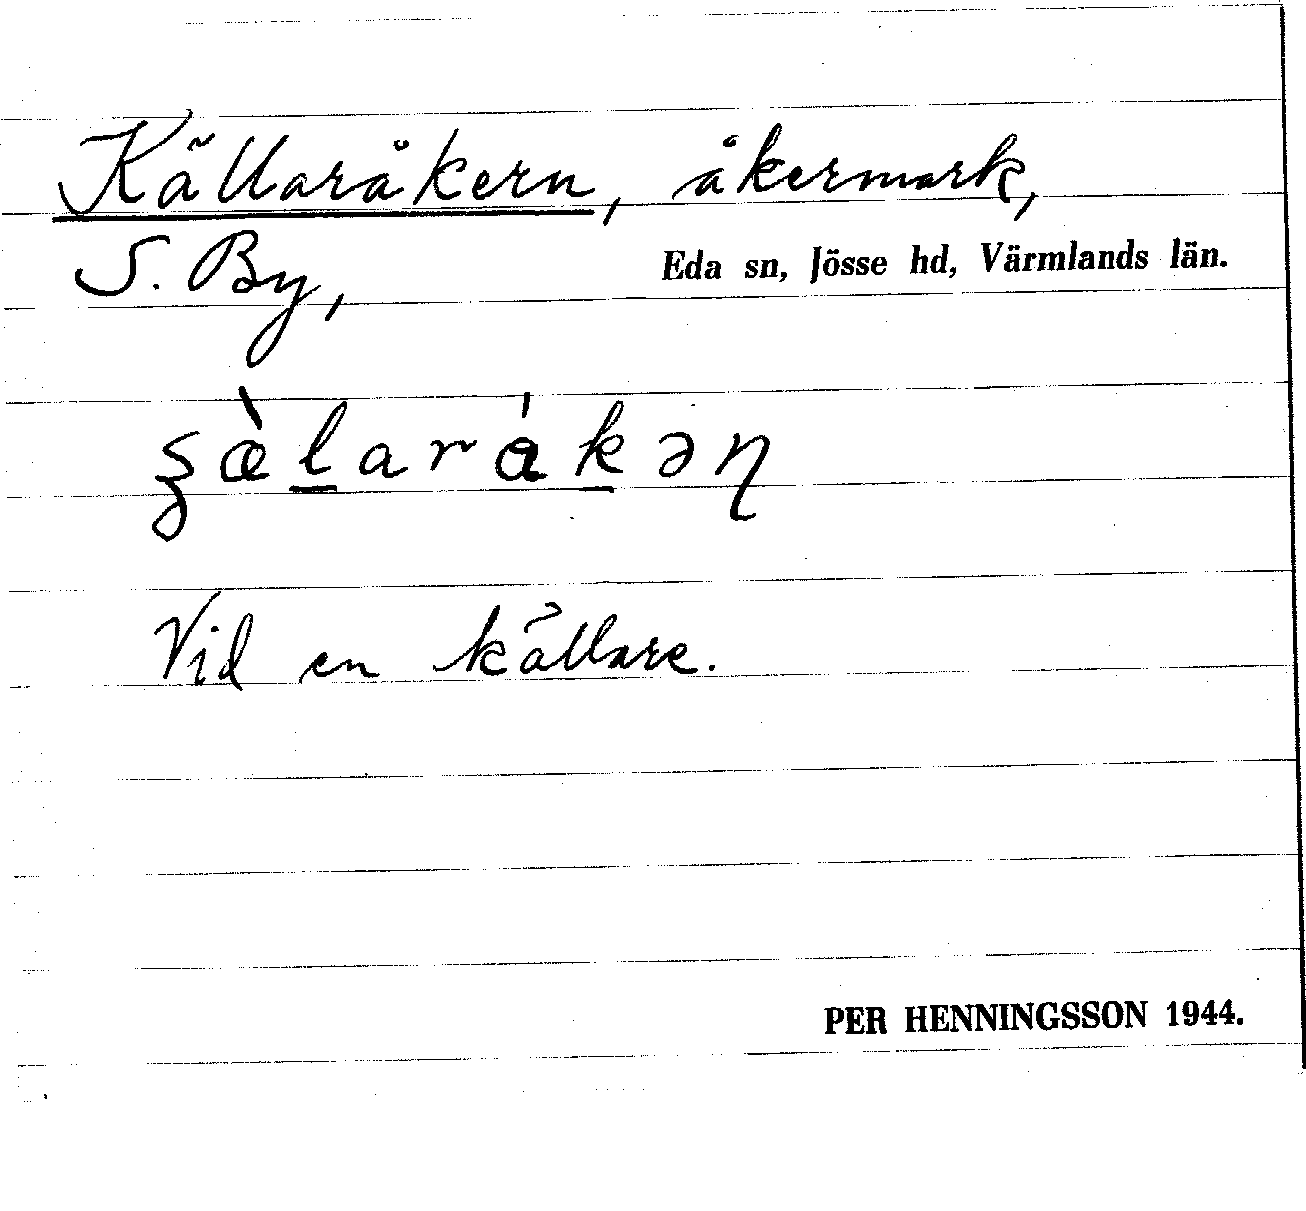 Källaråkern, åkermark,
S. By, Eda sn, Jösse hd, Värmlands län.
Vid en källare.
PER HENNINGSSON 1944.